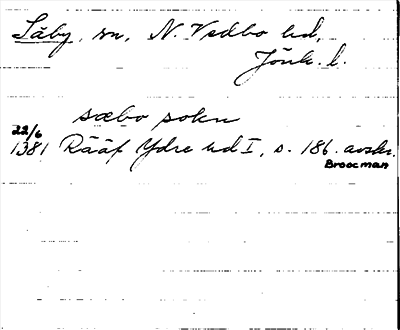 Säby, sn, N. Vedbo hd,
Jönk. l.
sæbo sokn
22/6
1381 Rääf Ydre hd I, s. 186. avskr.
Broocman